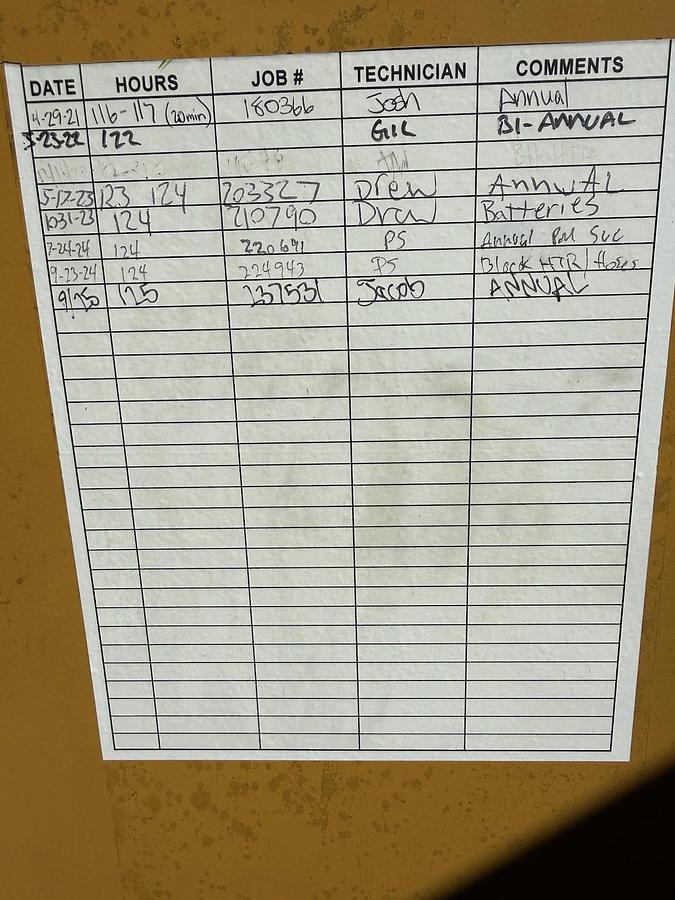 DATE HOURS JOB # TECHNICIAN COMMENTS
4-29-21 116-117 (20min) 180366 Josh Annual
5-23-22 122 GIL BI-ANNUAL
5-17-23 123 124 203327 Drew AnnuAL
10-31-23 124 210790 Drew Batteries
7-24-24 124 PS Annual PM Svc
9-23-24 124 224943 PS Block HTR/Hoses
9/25 125 237531 Jacob ANNUAL